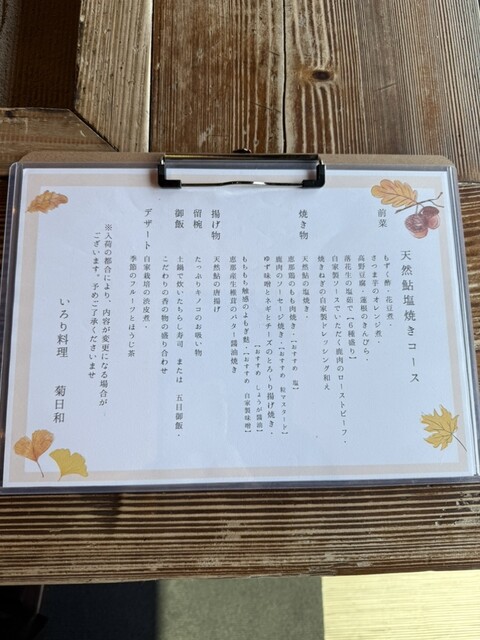 天然鮎塩焼きコース
前菜
もずく酢・花豆煮・
さつま芋のオレンジ煮・
高野豆腐・蓮根のきんぴら・
落花生の塩茹で(6種盛り)
自家製ソースでいただく鹿肉のローストビーフ・
焼きねぎの自家製ドレッシング和え
焼き物
天然鮎の塩焼き・
恵那鶏のもも肉焼き・【おすすめ 塩】
鹿肉のソーセージ焼き・【おすすめ 粒マスタード】
ゆず味噌とネギとチーズのとろ〜り揚げ焼き・
【おすすめ しょうが醤油】
もちもち触感のよもぎ麩・【おすすめ 自家製味噌】
恵那産生椎茸のバター醤油焼き
揚げ物
天然鮎の唐揚げ
留椀
たっぷりキノコのお吸い物
御飯
土鍋で炊いたちらし寿司 または 五目御飯・
こだわりの香の物の盛り合わせ
デザート
自家栽培の渋皮煮・
季節のフルーツとほうじ茶
※入荷の都合により、内容が変更になる場合が
ございます。予めご了承くださいませ
いろり料理 菊日和